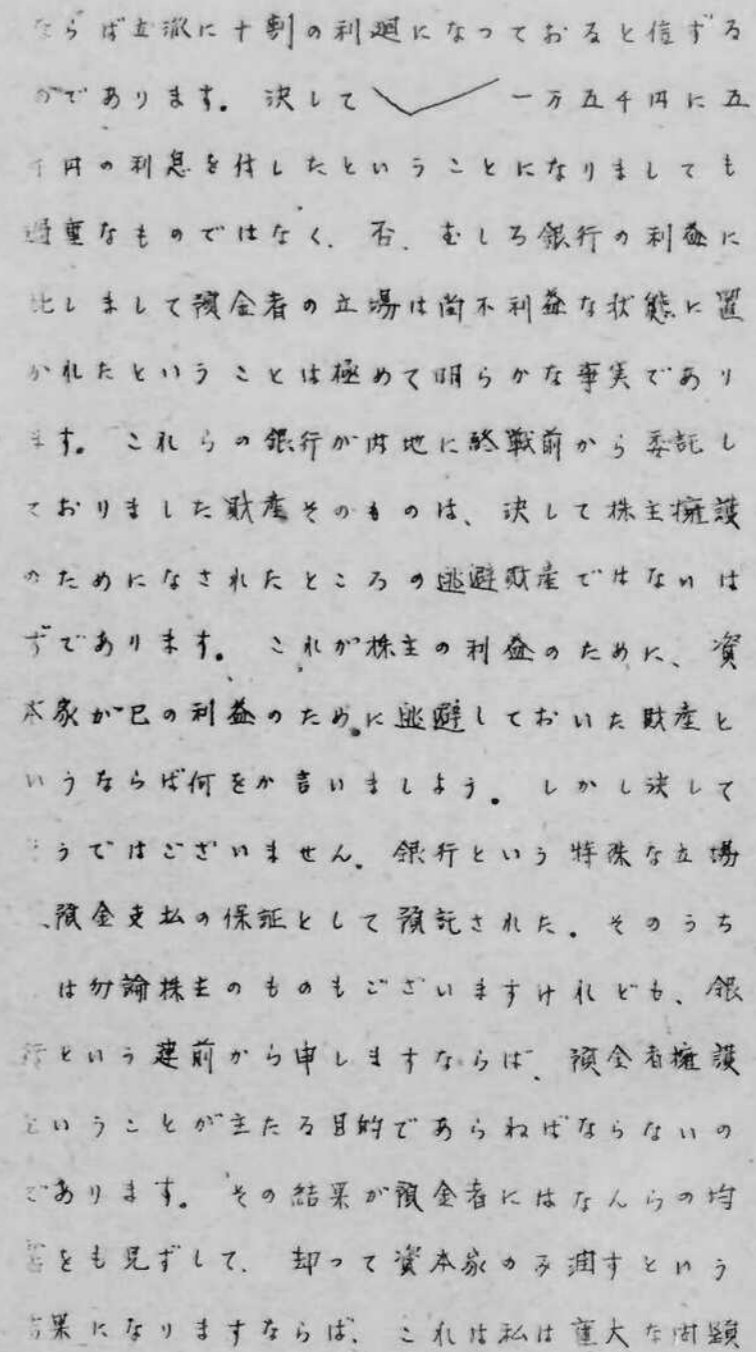 ならば立派に十割の利廻になっておると信ずる
のであります。決して 一万五千円に五
千円の利息を付したということになりましても
過重なものではなく、否、むしろ銀行の利益に
比しまして預金者の立場は尚不利益な状態に置
かれたということは極めて明らかな事実であり
ます。これらの銀行が内地に終戦前から委託し
ておりました財産そのものは、決して株主擁護
のためになされたところの逃避財産ではないは
ずであります。これが株主の利益のために、資
本家が己の利益のために逃避しておいた財産と
いうならば何をか言いましよう。しかし決して
そうではございません。銀行という特殊な立場
、預金支払の保証として預託された。そのうち
は勿論株主のものもございますけれども、銀
行という建前から申しますならば、預金者擁護
ということが主たる目的であらねばならないの
であります。その結果が預金者にはなんらの均
をも見ずして、却って資本家のみ潤すという
結果になりますならば、これは私は重大な問題